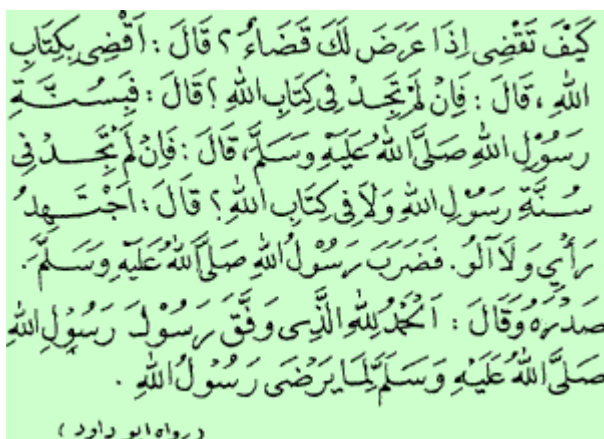 كَيْفَ تَقْضِى اِذَا عَرَضَ لَكَ قَضَاءٌ ؟ قَالَ : اَقْضِى بِكِتَابِ
اللهِ ، قَالَ : فَاِنْ لَمْ تَجِدْ فِى كِتَابِ اللهِ ؟ قَالَ : فَبِسُنَّةِ
رَسُوْلِ اللهِ صَلَّى اللهُ عَلَيْهِ وَسَلَّمَ، قَالَ : فَاِنْ لَمْ تَجِدْ فِى
سُنَّةِ رَسُوْلِ اللهِ وَلَا فِى كِتَابِ اللهِ ؟ قَالَ : اَجْتَهِدُ
رَأْيِي وَلَا آلُو. فَضَرَبَ رَسُوْلُ اللهِ صَلَّى اللهُ عَلَيْهِ وَسَلَّمَ.
صَدْرَهُ وَقَالَ : اَلْحَمْدُ لِلّٰهِ الَّذِى وَفَّقَ رَسُوْلَ رَسُوْلِ اللهِ
صَلَّى اللهُ عَلَيْهِ وَسَلَّمَ لِمَا يَرْضَى رَسُوْلُ اللهِ .
(رواه ابو داود)